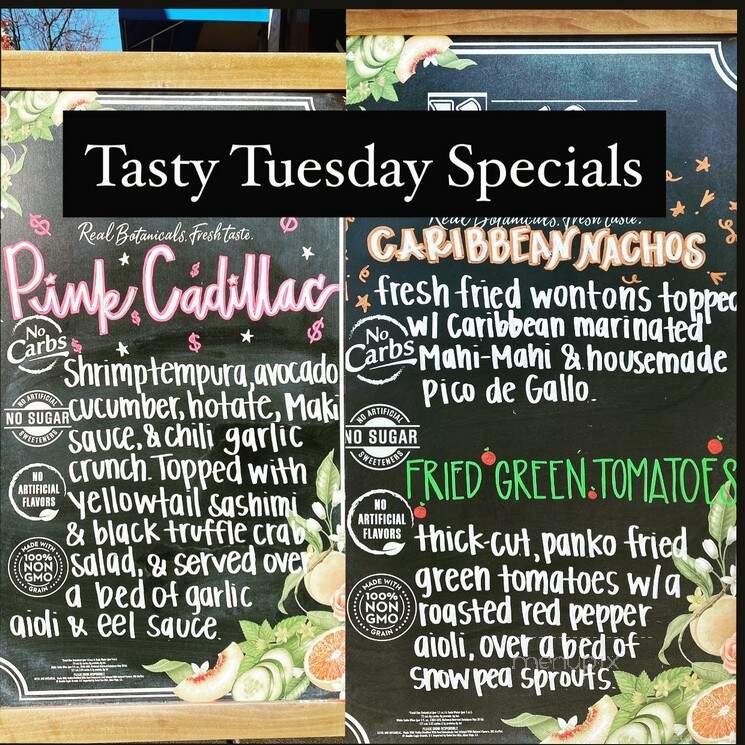 Tasty Tuesday Specials
Real Botanicals. Fresh taste.
Pink Cadillac
No
Carbs
NO ARTIFICIAL
NO SUGAR
SWEETENERS
NO
ARTIFICIAL
FLAVORS
MADE WITH
100%
NON
GMO
GRAIN
Shrimp tempura, avocado
cucumber, hotate, Maki
sauce, & chili garlic
crunch. Topped with
yellowtail sashimi
& black truffle crab
salad, & served over
a bed of garlic
aioli & eel sauce.
PLEASE DRINK RESPONSIBLY.
Real Botanicals. Fresh taste.
CARIBBEAN NACHOS
fresh fried wontons topped
w/ Caribbean marinated
Mahi-Mahi & housemade
Pico de Gallo.
No
Carbs
NO ARTIFICIAL
NO SUGAR
SWEETENERS
NO
ARTIFICIAL
FLAVORS
MADE WITH
100%
NON
GMO
GRAIN
FRIED GREEN TOMATOES
thick-cut, panko fried
green tomatoes w/ a
roasted red pepper
aioli, over a bed of
snow pea sprouts.
menupix
PLEASE DRINK RESPONSIBLY.